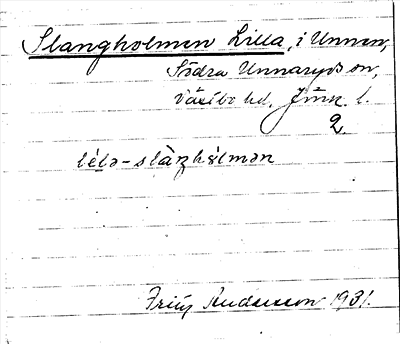 Slangholmen Lilla, i Unnen,
Södra Unnaryds sn,
Västbo hd, Jönk. l.
2
lɩ́lə-slàŋhɔ̀lmən
Frits Andersson 1931.